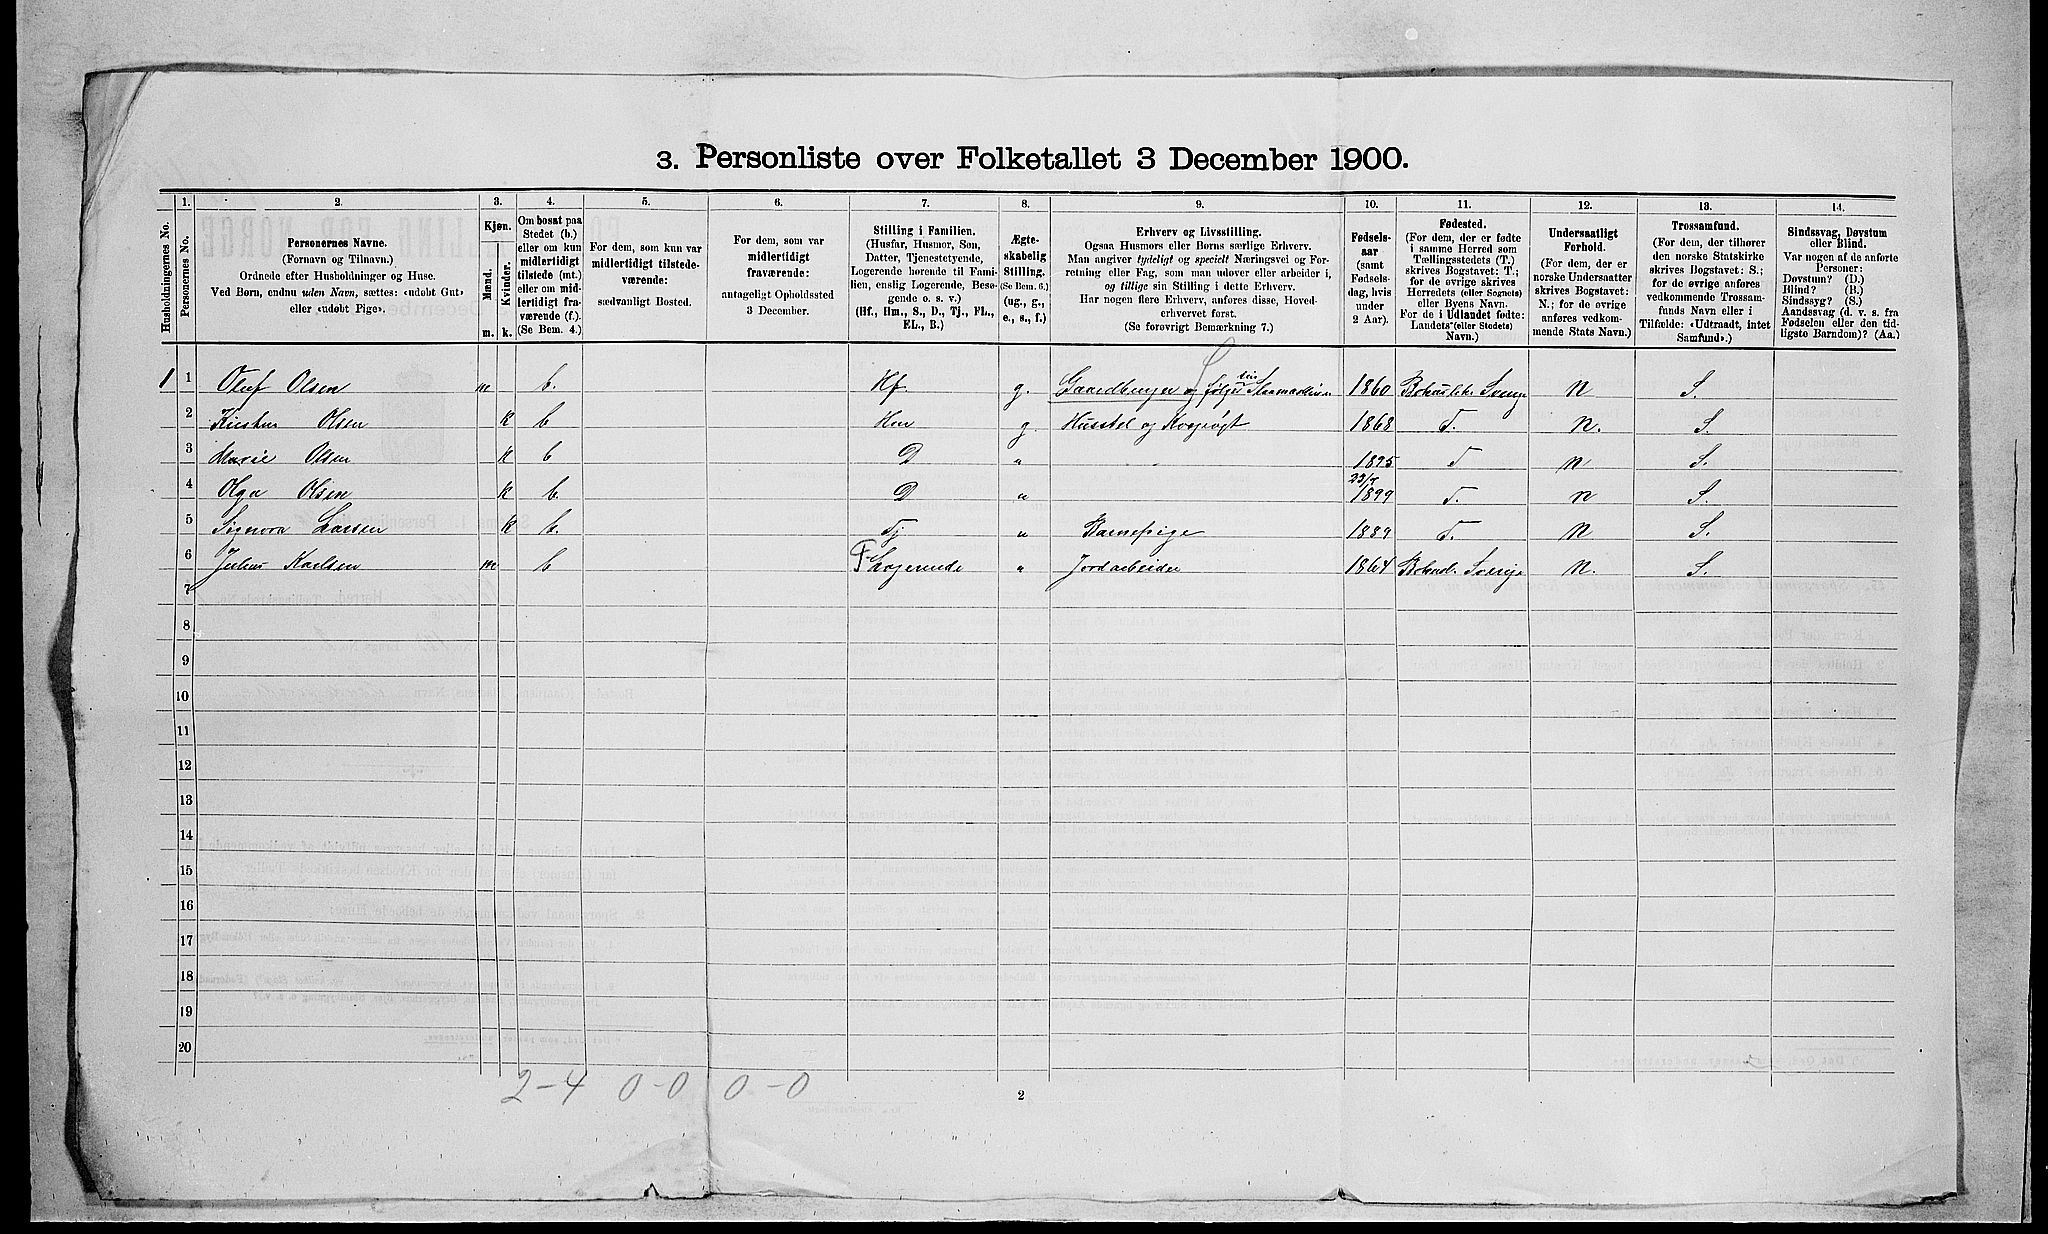 3. Personliste over Folketallet 3 December 1900.
Husholdningernes No.
1.
Personernes No.
2.
Personernes Navne.
(Fornavn og Tilnavn.)
Ordnede efter Husholdninger og Huse.
Ved Børn, endnu uden Navn, sættes: «udøbt Gut»
eller «udøbt Pige».
3.
Kjøn.
Mænd.
Kvinder.
m. k.
4.
Om bosat paa
Stedet (b.)
eller om kun
midlertidigt
tilstede (mt.)
eller om mid-
lertidigt fra-
værende (f.).
(Se Bem. 4.)
5.
For dem, som kun var
midlertidigt tilstede-
værende:
sædvanligt Bosted.
6.
For dem, som var
midlertidigt
fraværende:
antageligt Opholdssted
3 December.
7.
Stilling i Familien.
(Husfar, Husmor, Søn,
Datter, Tjenestetyende,
Logerende hørende til Fami-
lien, enslig Logerende, Besø-
gende o. s. v.)
(Hf., Hm., S., D., Tj., FL.,
EL., B.)
8.
Ægte-
skabelig
Stilling.
(Se Bem. 6.)
(ug., g.,
e., s., f.)
9.
Erhverv og Livsstilling.
Ogsaa Husmors eller Børns særlige Erhverv.
Man angiver tydeligt og specielt Næringsvei og For-
retning eller Fag, som man udøver eller arbeider i,
og tillige sin Stilling i dette Erhverv.
Har nogen flere Erhverv, anføres disse, Hoved-
erhvervet først.
(Se forøvrigt Bemærkning 7.)
10.
Fødsels-
aar
(samt
Fødsels-
dag, hvis
under
2 Aar).
11.
Fødested.
(For dem, der er fødte
i samme Herred som
Tællingsstedets (T.)
skrives Bogstavet: T.;
for de øvrige skrives
Herredets (eller Sognets)
eller Byens Navn.
For de i Udlandet fødte:
Landets (eller Stedets)
Navn.)
12.
Undersaatligt
Forhold.
(For dem, der er
norske Undersaatter
skrives Bogstavet:
N.; for de øvrige
anføres vedkom-
mende Stats Navn.)
13.
Trossamfund.
(For dem, der tilhører
den norske Statskirke
skrives Bogstavet: S.;
for de øvrige anføres
vedkommende Trossam-
funds Navn eller i
Tilfælde: «Udtraadt, intet
Samfund».)
14.
Sindssvag, Døvstum
eller Blind.
Var nogen af de anførte
Personer:
Døvstum? (D.)
Blind? (B.)
Sindssyg? (S.)
Aandssvag (d. v. s. fra
Fødselen eller den tid-
ligste Barndom)? (Aa.)
1 1 Oluf Olsen m b. Hf. g. Gaardbruger og følger sin 1860 N S.
2 Kirsten Olsen k b Hm g. Husstel og Kreørøgt 1868 T. N. S.
3 Marie Olsen k b D " 1895 T N S.
4 Olga Olsen k b. D " 23/7 1899 T. N S.
5 Signora Larsen k b. Tj " Barnepige 1889 T. N S.
6 Julius Karlsen m b F Logerende " Jordarbeider 1864 Bohusl. Sverige N. S.
7
8
9
10
11
12
13
14
15
16
17
18
19
20
2-4 0-0 0-0
2